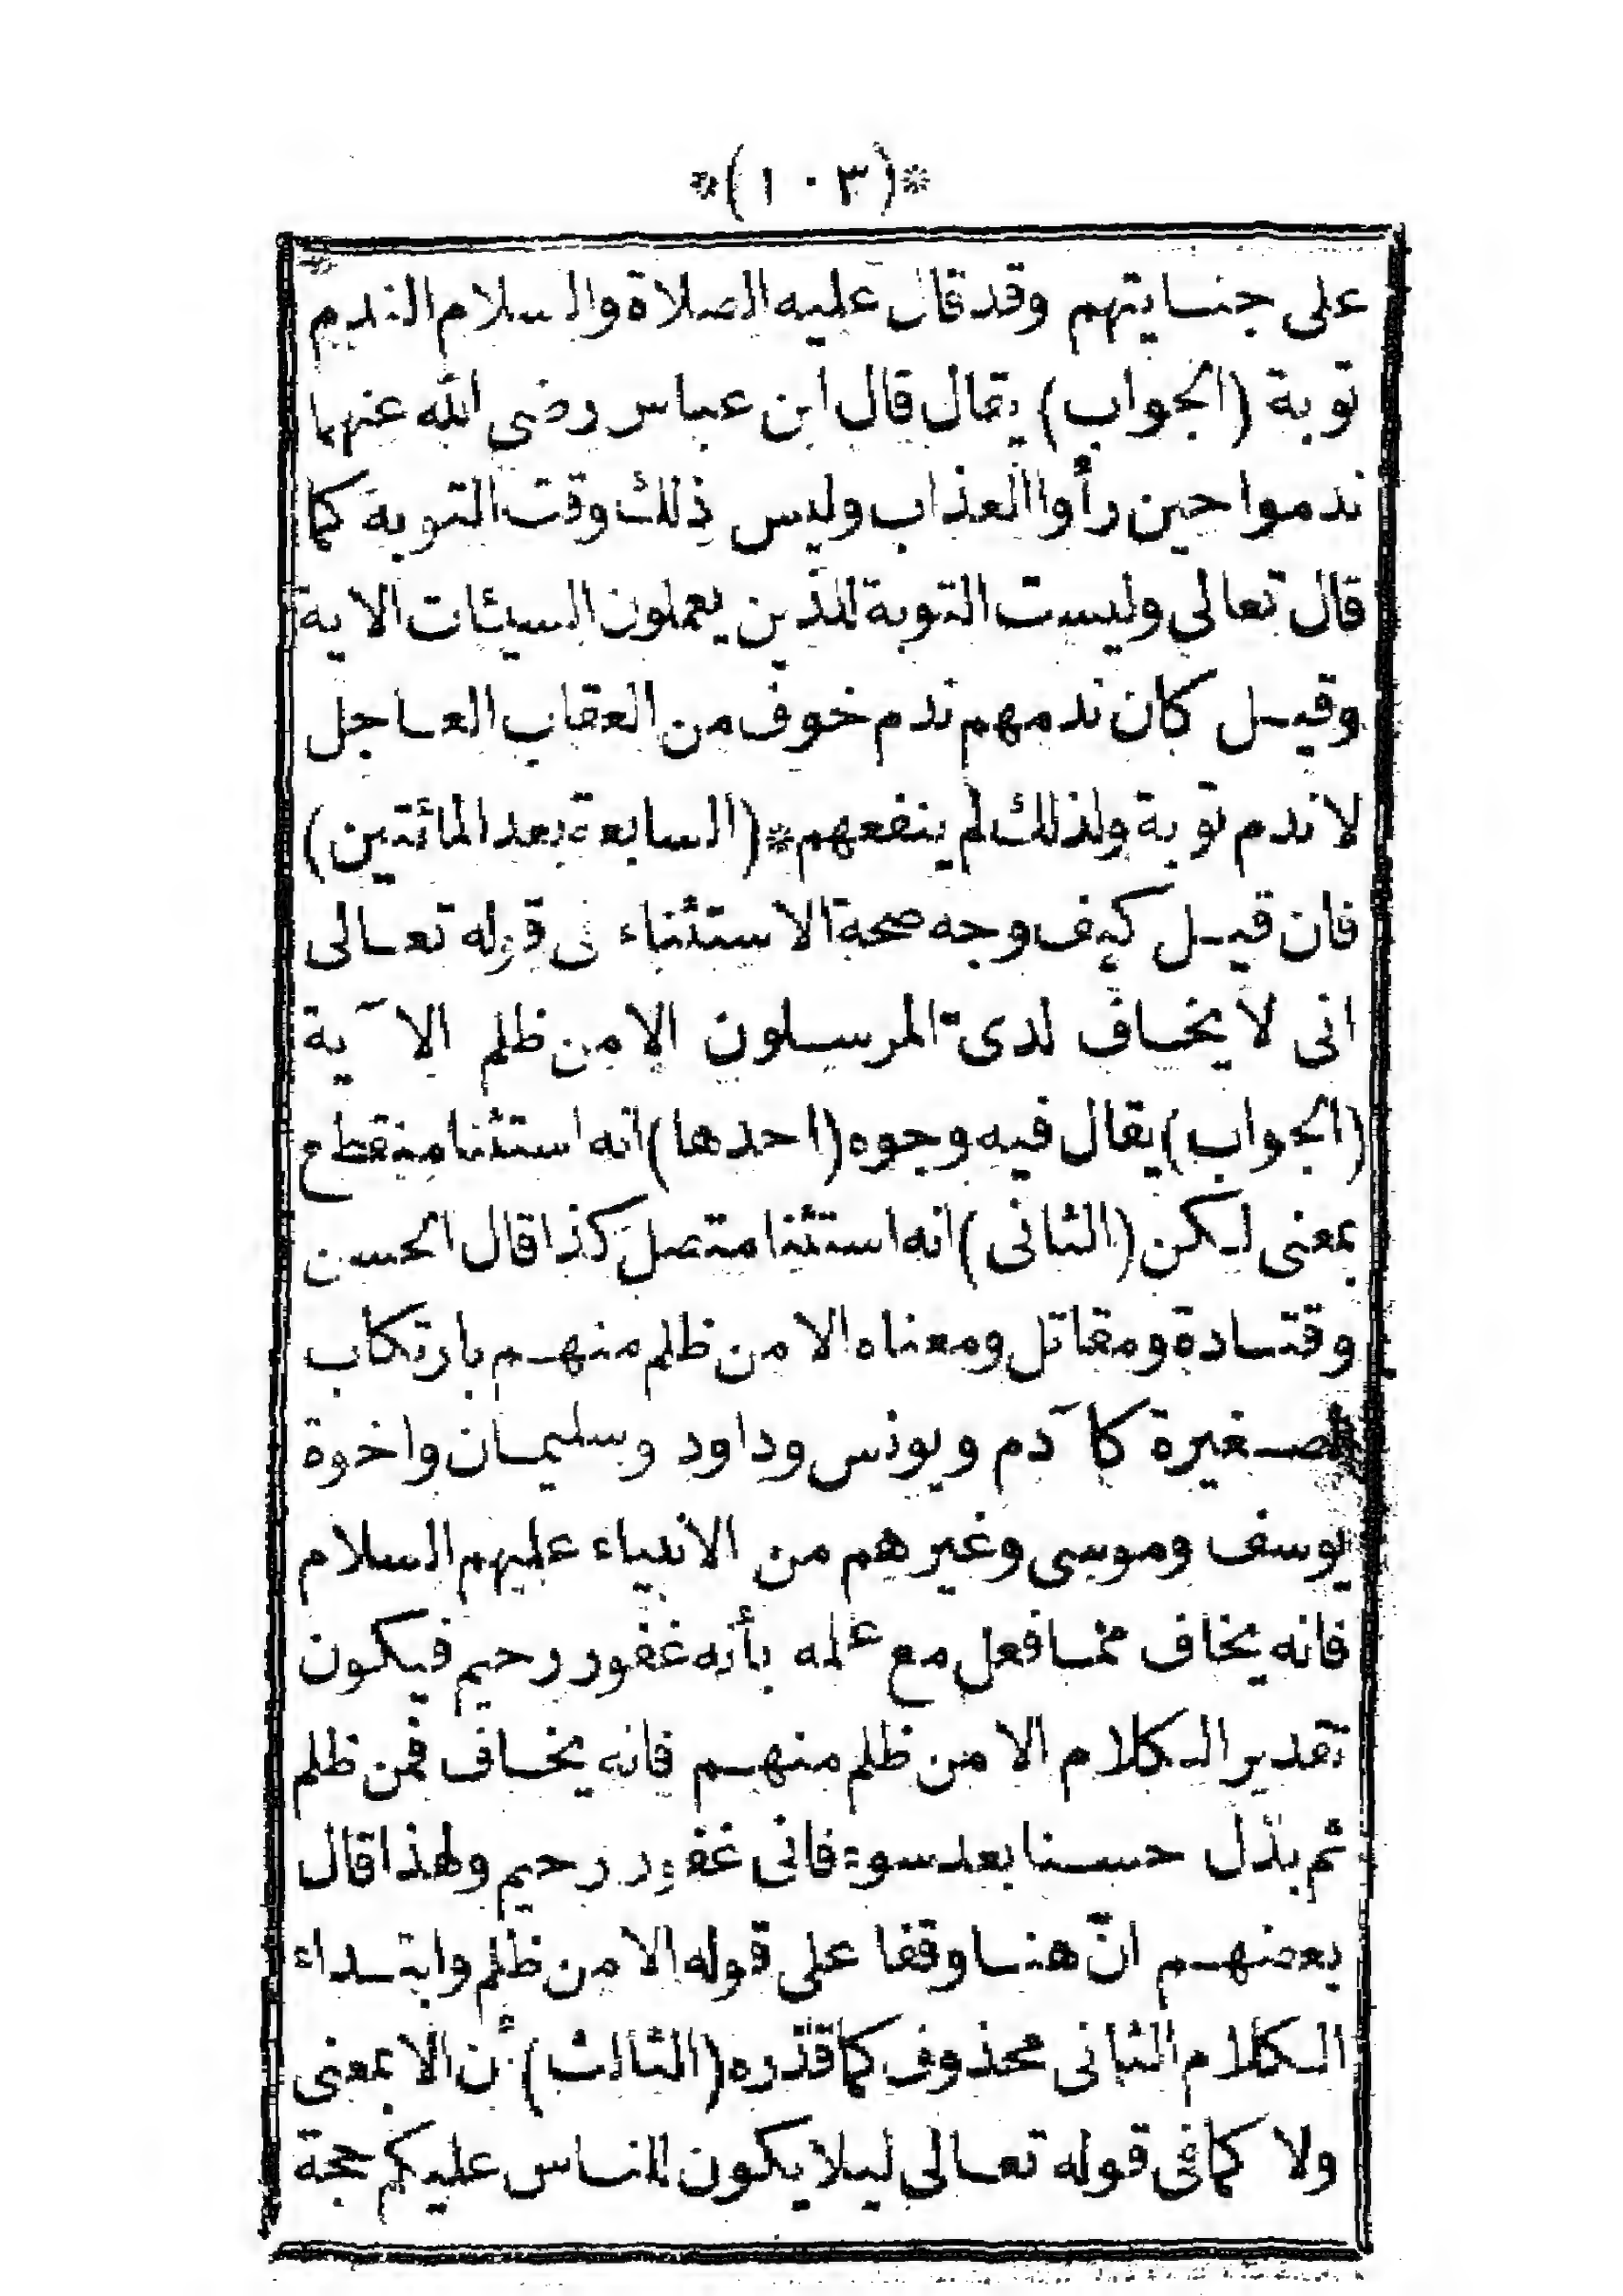 *(١٠٣)*
على جنايتهم وقد قال عليه الصلاة والسلام الندم
توبة (الجواب) يقال قال ابن عباس رضى الله عنهما
ندموا حين رأوا العذاب وليس ذلك وقت التوبة كما
قال تعالى وليست التوبة للذين يعملون السيئات الاية
وقيل كان ندمهم ندم خوف من العقاب العاجل
لا ندم توبة ولذلك لم ينفعهم *(السابعة بعد المائتين)
فان قيل كيف وجه صحة الاستثناء فى قوله تعالى
انى لا يخاف لدىّ المرسلون الا من ظلم الآية
(الجواب) يقال فيه وجوه (احدها) انه استثنا منقطع
بمعنى لكن (الثانى) انه استثنا متصل كذا قال الحسن
وقتادة ومقاتل ومعناه الا من ظلم منهم بارتكاب
الصغيرة كآدم ويونس وداود وسليمان واخوة
يوسف وموسى وغيرهم من الانبياء عليهم السلام
فانه يخاف مما فعل مع علمه بأنه غفور رحيم فيكون
تقدير الكلام الا من ظلم منهم فانه يخاف فمن ظلم
ثم بدّل حسنا بعد سوء فانى غفور رحيم ولهذا قال
بعضهم انّ هنا وقفا على قوله الا من ظلم وابتداء
الكلام الثانى محذوف كما قدّره (الثالث) أن الا بمعنى
ولا كما فى قوله تعالى ليلا يكون للناس عليكم حجة